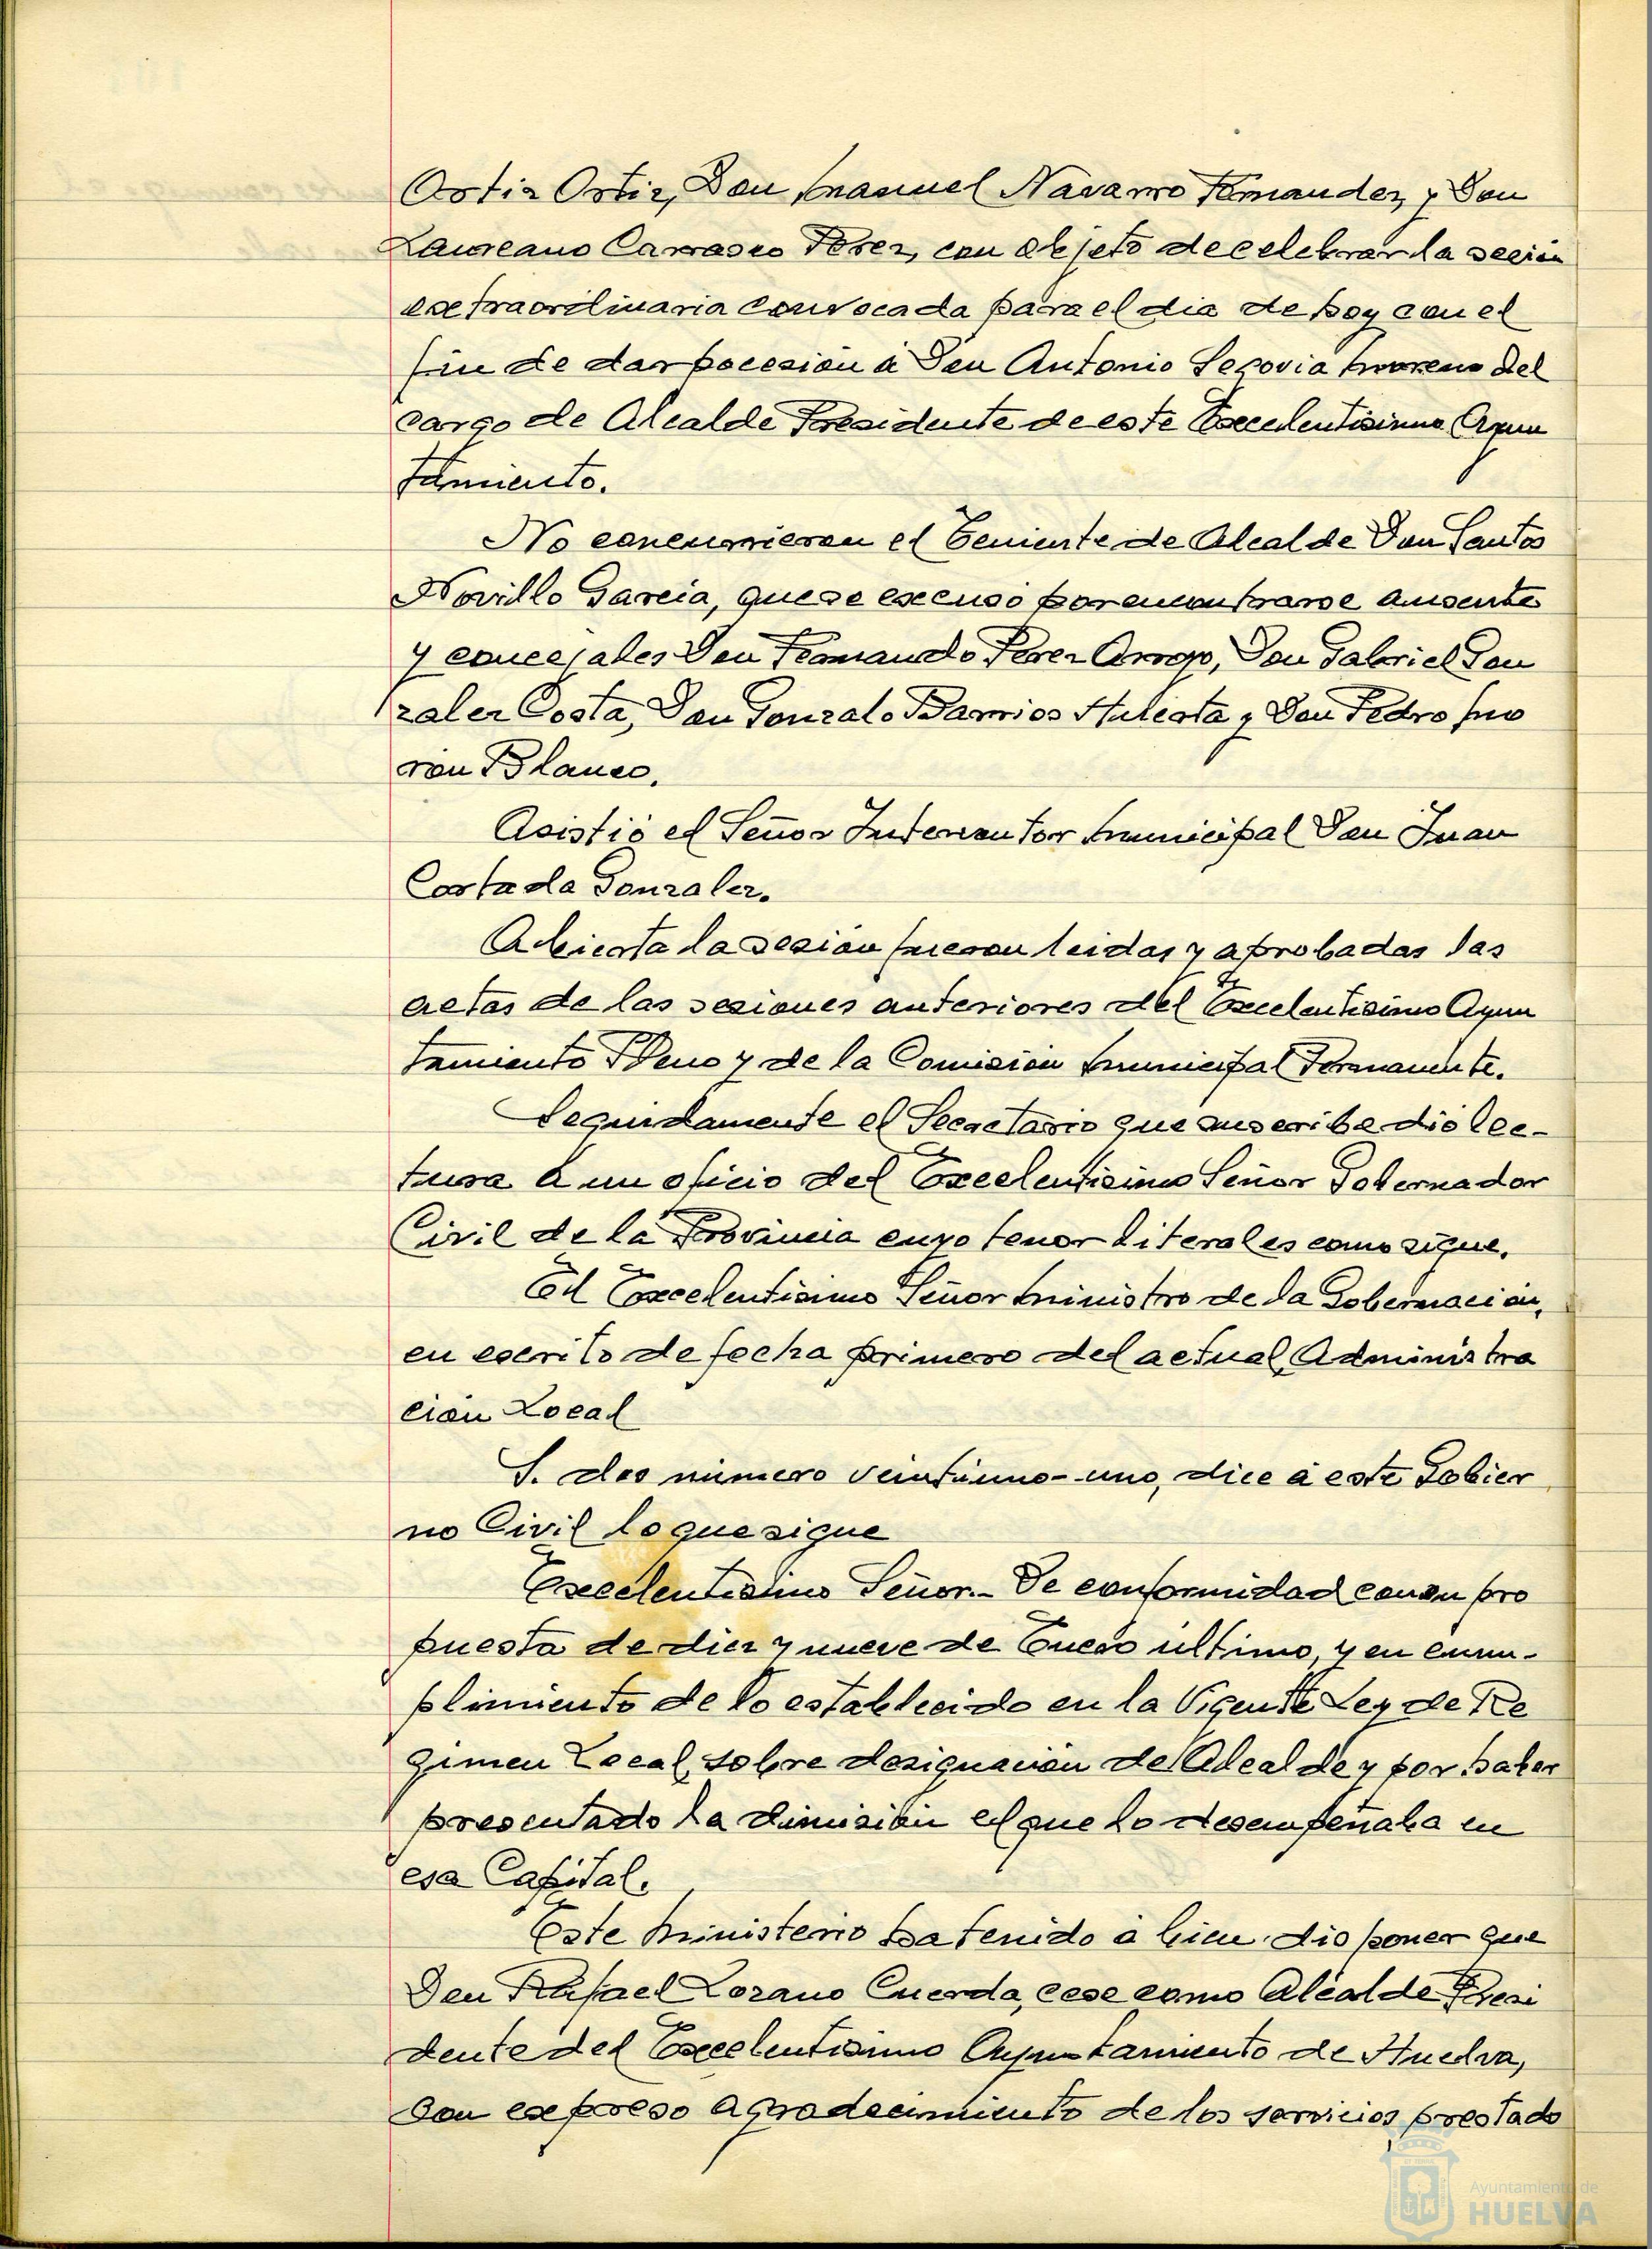 Ortiz Ortiz, Don Manuel Navarro Fernandez, y Don
Laureano Carrasco Perez, con objeto de celebrar la seción
extraordinaria convocada para el dia de hoy con el
fin de dar pocesión á Don Antonio Segovia Moreno del
cargo de Alcalde Presidente de este Excelentisimo Ayun
tamiento.
No concurrieron el Teniente de Alcalde Don Santos
Novillo Garcia, que se excusó por encontrarse ausente
y concejales Don Fernando Perez Arroyo, Don Gabriel Gon
zalez Costa, Don Gonzalo Barrios y Don Pedro Mo
ron Blanco.
Asistió el Señor Interventor Municipal Don Juan
Cortada Gonzalez.
Abierta la sesion fueron leidas y aprobadas las
actas de las sesiones anteriores del Excelentisimo Ayun
tamiento Pleno y de la Comisión Municipal Permanente.
Seguidamente el Secretario que suscribe dió lec-
tura á un oficio del Excelentisimo Señor Gobernador
Civil de la Provincia cuyo tenor literal es como sigue.
El Excelentisimo Señor Ministro de la Gobernación,
en escrito de fecha primero del actual, Administra
ción Local
S. dos número veintiuno-uno, dice á este Gobier
no Civil lo que sigue
Excelentisimo Señor.- De conformidad con su pro
puesta de diez y nueve de Enero último, y en cum-
plimiento de lo establecido en la Vigente Ley de Re
gimen Local, sobre designación de Alcalde y por haber
presentado la dimisión el que lo desempeñaba en
esa Capital.
Este Ministerio ha tenido á bien disponer que
Don Rafael Lozano Cuerda, cese como Alcalde Presi
dente del Excelentisimo Ayuntamiento de Huelva,
con expreso agradecimiento de los servicios prestado
Ayuntamiento de
HUELVA